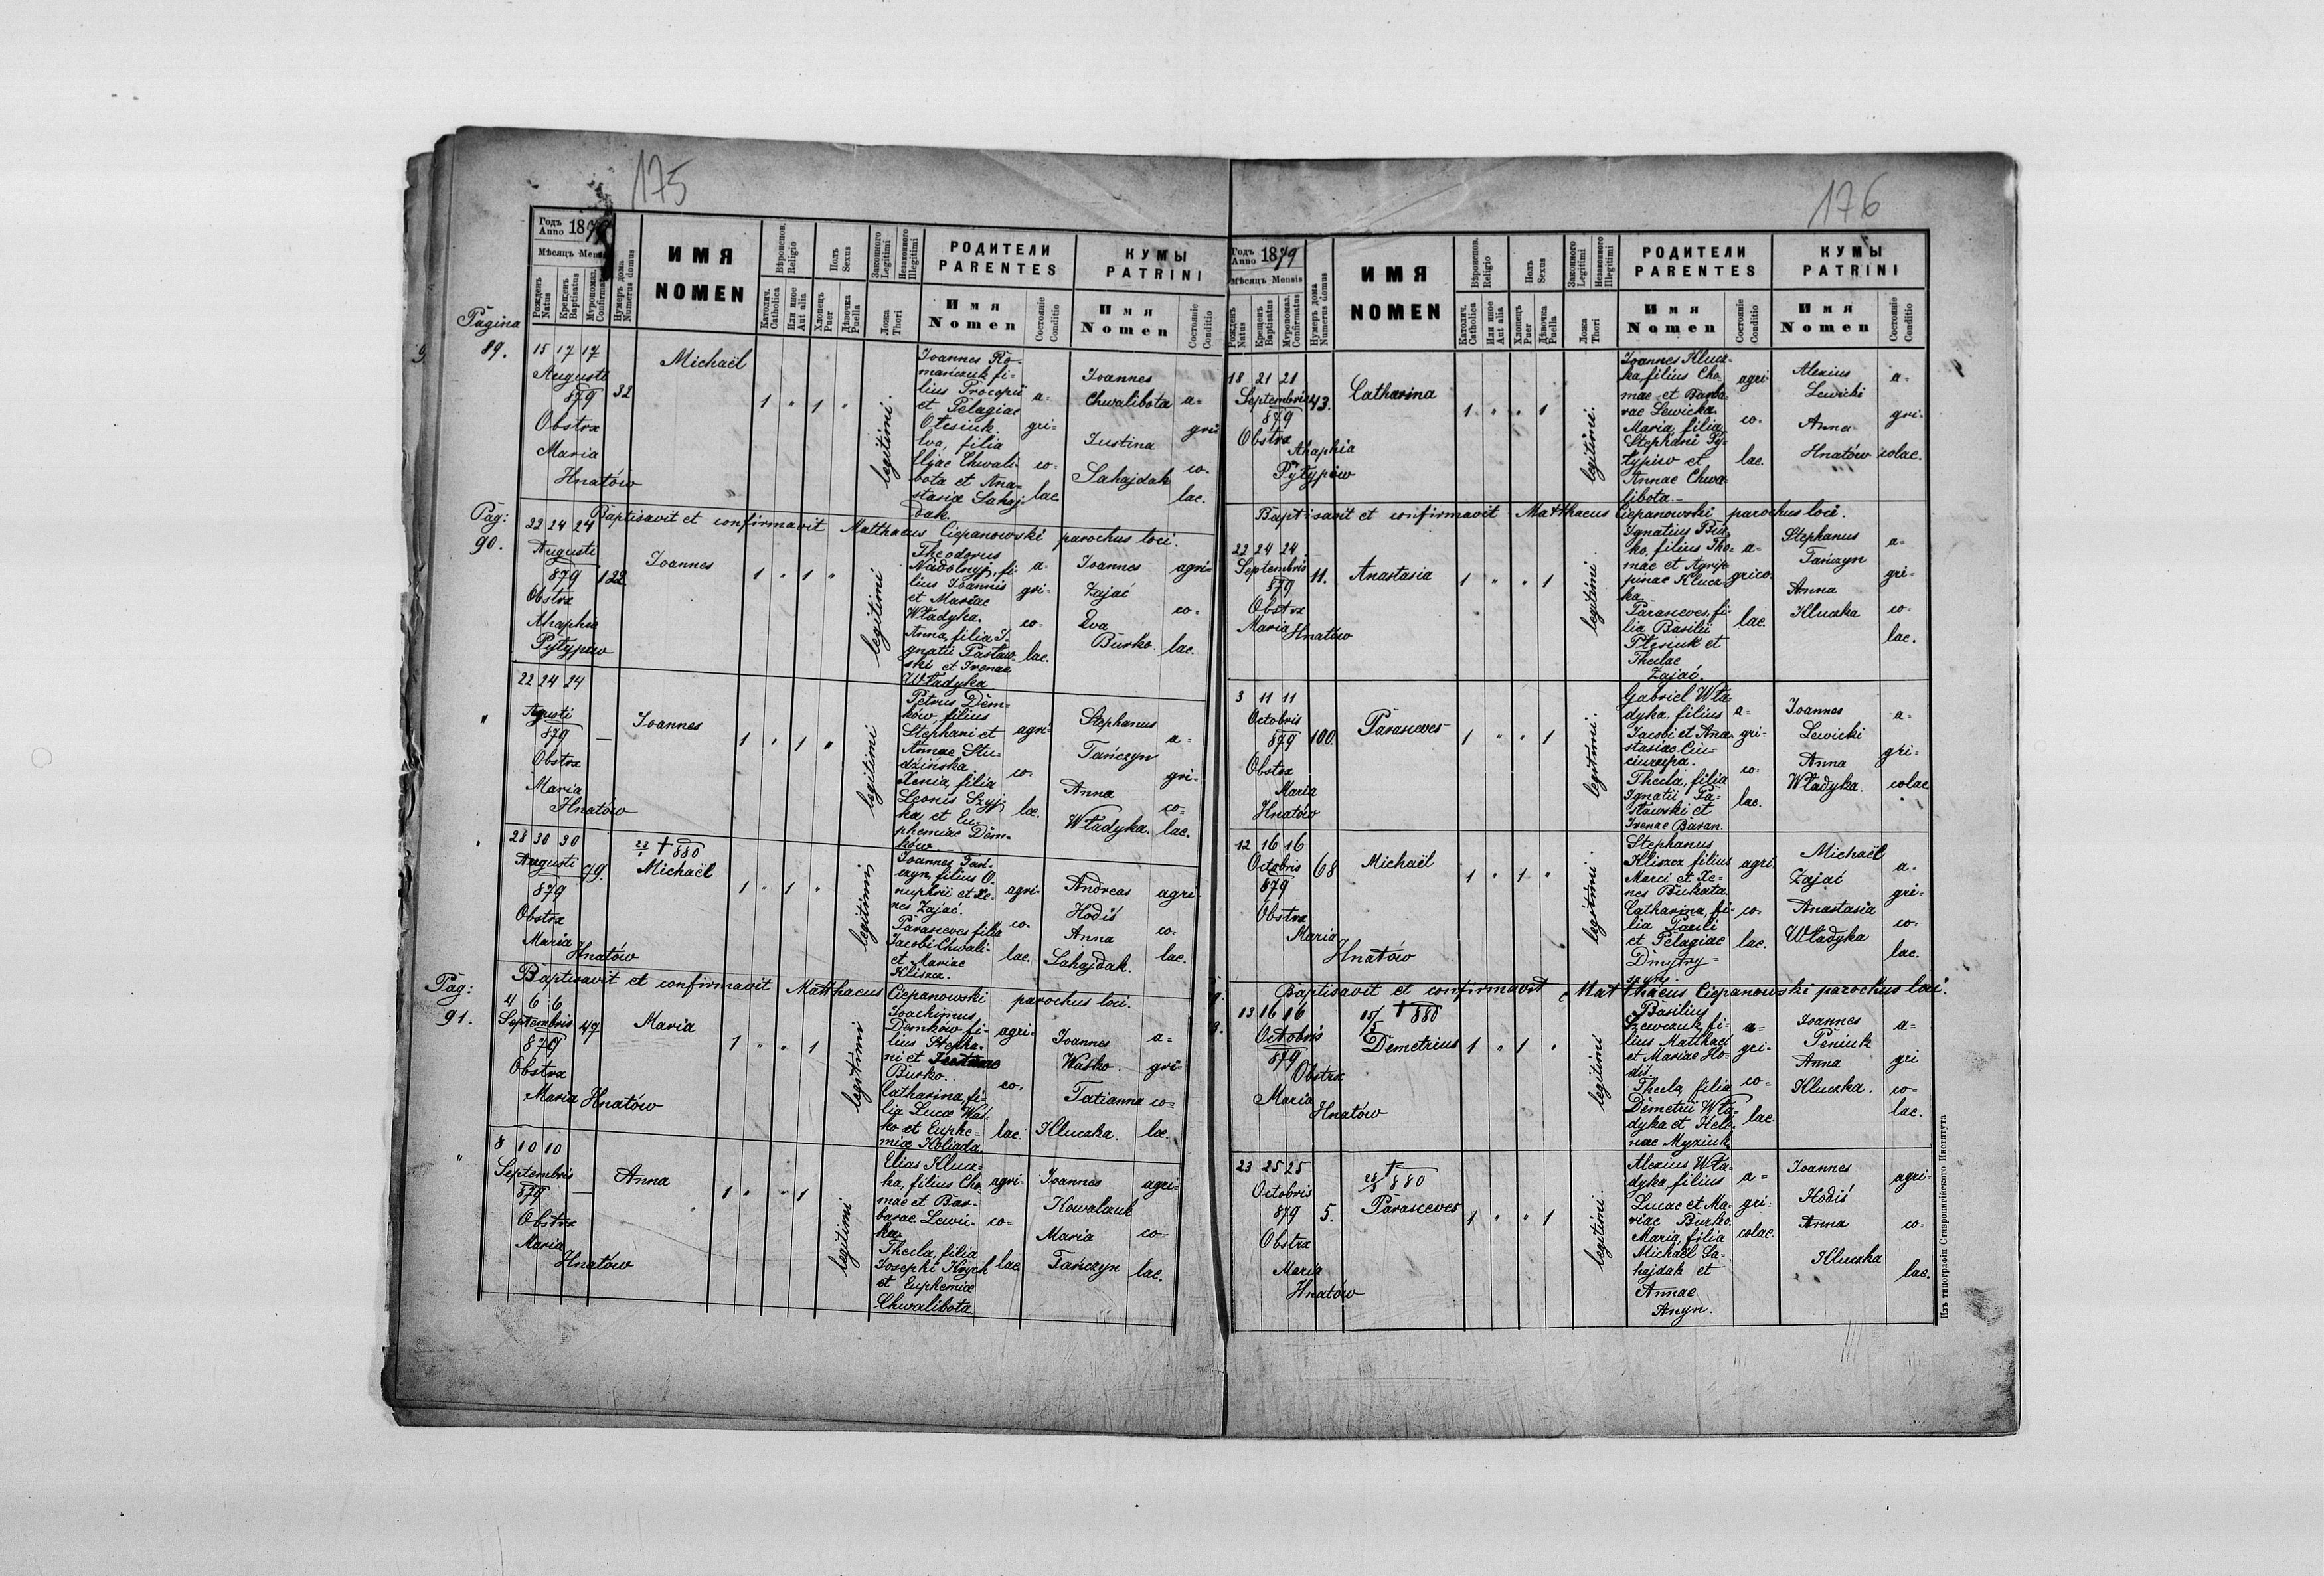 175
Годъ Anno 1879
Мѣсяцъ Mensis
Рожденъ Natus
Крещенъ Baptisatus
Мѵропомаз. Confirmatus
Нумеръ дома Numerus domus
ИМЯ
NOMEN
Вѣроисповѣд. Religio
Католич. Catholica
Или иное Aut alia
Полъ Sexus
Хлопецъ Puer
Дѣвочка Puella
Законного Legitimi
Незаконного Illegitimi
Ложа Thori
РОДИТЕЛИ
PARENTES
Имя
Nomen
Состояніе Conditio
КУМЫ
PATRINI
Имя
Nomen
Состояніе Conditio
Pagina
89.
15 17 17
Augusti
879
Obstrx
Maria
Hnatów
32
Michaël
1 " 1 "
legitimi.
Joannes Ro-
mańczuk fi-
lius Procopii
et Pelagiae
Olesiuk.
Eva, filia
Eliae Chwali-
bota et Ana-
stasiae Sahaj-
dak.
a-
gri-
co-
lac.
Joannes
Chwalibota
Justina
Sahajdak
a-
gri-
co-
lac.
Baptisavit et confirmavit Matthaeus Ciepanowski parochus loci.
Pag:
90.
22 24 24
Augusti
879
Obstrx
Ahaphia
Pytypiw
122
Joannes
1 " 1 "
legitimi
Theodorus
Nadolnyj, fi-
lius Joannis
et Mariae
Władyka.
Anna, filia I-
gnatii Pastaw-
ski et Irenae
Władyka
a-
gri-
co-
lac.
Joannes
Zajać
Eva
Burko.
agri-
co-
lac.
"
22 24 24
Agusti
879
Obstrx
Maria
Hnatów
—
Joannes
1 " 1 "
legitimi
Petrus Dem-
ków, filius
Stephani et
Annae Stu-
dzińska.
Xenia, filia
Leonis Szyj-
ka et Eu-
phemiae Dem-
ków.
agri-
co-
lac.
Stephanus
Tańczyn
Anna
Władyka.
a-
gri-
co-
lac.
28 30 30
Augusti
879
Obstrx
Maria
Hnatów
79.
22/1 † 880
Michaël
1 " 1 "
legitimi
Joannes Tań-
czyn, filius O-
nuphrii et Xe-
nes Zajać.
Parasceves filia
Jacobi Chwali-
et Mariae
Kliszcz.
agri-
co-
lac.
Andreas
Hodiś
Anna
Sahajdak.
agri-
co-
lac.
Baptisavit et confirmavit Matthaeus Ciepanowski parochus loci.
Pag:
91.
4 6 6
Septembris
879
Obstrx
Maria Hnatów
47
Maria
1 " " 1
legitimi
Joachimus
Demków fi-
lius Stepha-
ni et
Burko.
Catharina, fi-
lia Lucae Waś-
ko et Euphe-
miae Koliada.
agri-
co-
lac.
Joannes
Waśko.
Tatianna
Kluczka.
a-
gri-
co-
lac.
"
8 10 10
Septembris
879
Obstrx
Maria
Hnatów
—
Anna
1 " " 1
legitimi
Elias Klucz-
ka, filius Cho-
mae et Bar-
barae Lewic-
ka.
Thecla, filia
Josephi Krych
et Euphemiae
Chwalibota.
agri-
co-
lac.
Joannes
Kowalczuk
Maria
Tańczyn
agri-
co-
lac.
176
Годъ Anno 1879
Мѣсяцъ Mensis
Рожденъ Natus
Крещенъ Baptisatus
Мѵропомаз. Confirmatus
Нумеръ дома Numerus domus
ИМЯ
NOMEN
Вѣроисповѣд. Religio
Католич. Catholica
Или иное Aut alia
Полъ Sexus
Хлопецъ Puer
Дѣвочка Puella
Законного Legitimi
Незаконного Illegitimi
Ложа Thori
РОДИТЕЛИ
PARENTES
Имя
Nomen
Состояніе Conditio
КУМЫ
PATRINI
Имя
Nomen
Состояніе Conditio
18 21 21
Septembris
879
Obstrx
Ahaphia
Pytypiw
43.
Catharina
1 " " 1
legitimi.
Joannes Klucz-
ka, filius Cho-
mae et Barba-
rae Lewicka.
Maria, filia
Stephani Py-
typiw et
Annae Chwa-
libota.
agri-
co-
lac.
Alexius
Lewicki
Anna
Hnatów
a-
gri-
colac.
Baptisavit et confirmavit Matthaeus Ciepanowski parochus loci.
22 24 24
Septembris
879
Obstrx
Maria Hnatów
11.
Anastasia
1 " " 1
legitimi
Ignatius Bur-
ko, filius Tho-
mae et Agrip-
pinae Klucz-
ka.
Parasceves, fi-
lia Basilii
Ptesiuk et
Theclae
Zajać.
a-
grico-
lac.
Stephanus
Tańczyn
Anna
Kluczka
a-
gri-
co-
lac.
3 11 11
Octobris
879
Obstrx
Maria
Hnatów
100.
Parasceves
1 " " 1
legitimi.
Gabriel Wła-
dyka, filius
Jacobi et Ana-
stasiae Ciu-
ciurupa.
Thecla, filia
Ignatii Pa-
stawski et
Irenae Baran.
a-
gri-
co-
lac.
Joannes
Lewicki
Anna
Władyka.
a-
gri-
colac.
12 16 16
Octobris
879
Obstrx
Maria
Hnatów
68
Michaël
1 " 1 "
legitimi.
Stephanus
Kliszcz filius
Marci et Xe-
nes Bukata.
Catharina, fi-
lia Pauli
et Pelagiae
Dmytry-
szyn.
agri-
co-
lac.
Michaël
Zajać
Anastasia
Władyka
a-
gri-
co-
lac.
Baptisavit et confirmavit Matthaeus Ciepanowski parochus loci.
13 16 16
Octobris
879
Obstrx
Maria
Hnatów
15/5 † 880
Demetrius
1 " 1 "
legitimi
Basilius
Szewczuk, fi-
lius Matthaei
et Mariae Ho-
diś.
Thecla, filia
Demetrii Wła-
dyka et Hele-
nae Myziuk.
a-
gri-
co-
lac.
Joannes
Peniuk
Anna
Kluczka.
a-
gri
co-
lac.
23 25 25
Octobris
879
Obstrx
Maria
Hnatów
5.
† 880
Parasceves
1 " " 1
legitimi.
Alexius Wła-
dyka filius
Lucae et Ma-
riae Burko.
Maria, filia
Michaël Sa-
hajdak et
Annae
Anyn.
a-
gri-
colac.
Joannes
Hodiś
Anna
Kluczka
agri-
co-
lac.
Изъ типографіи Ставропигійского Института